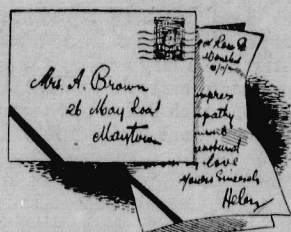 Mrs. A. Brown
26 May Road
Maytown
mpress
mpathy
ment
love
Yours Sincerely
Helen